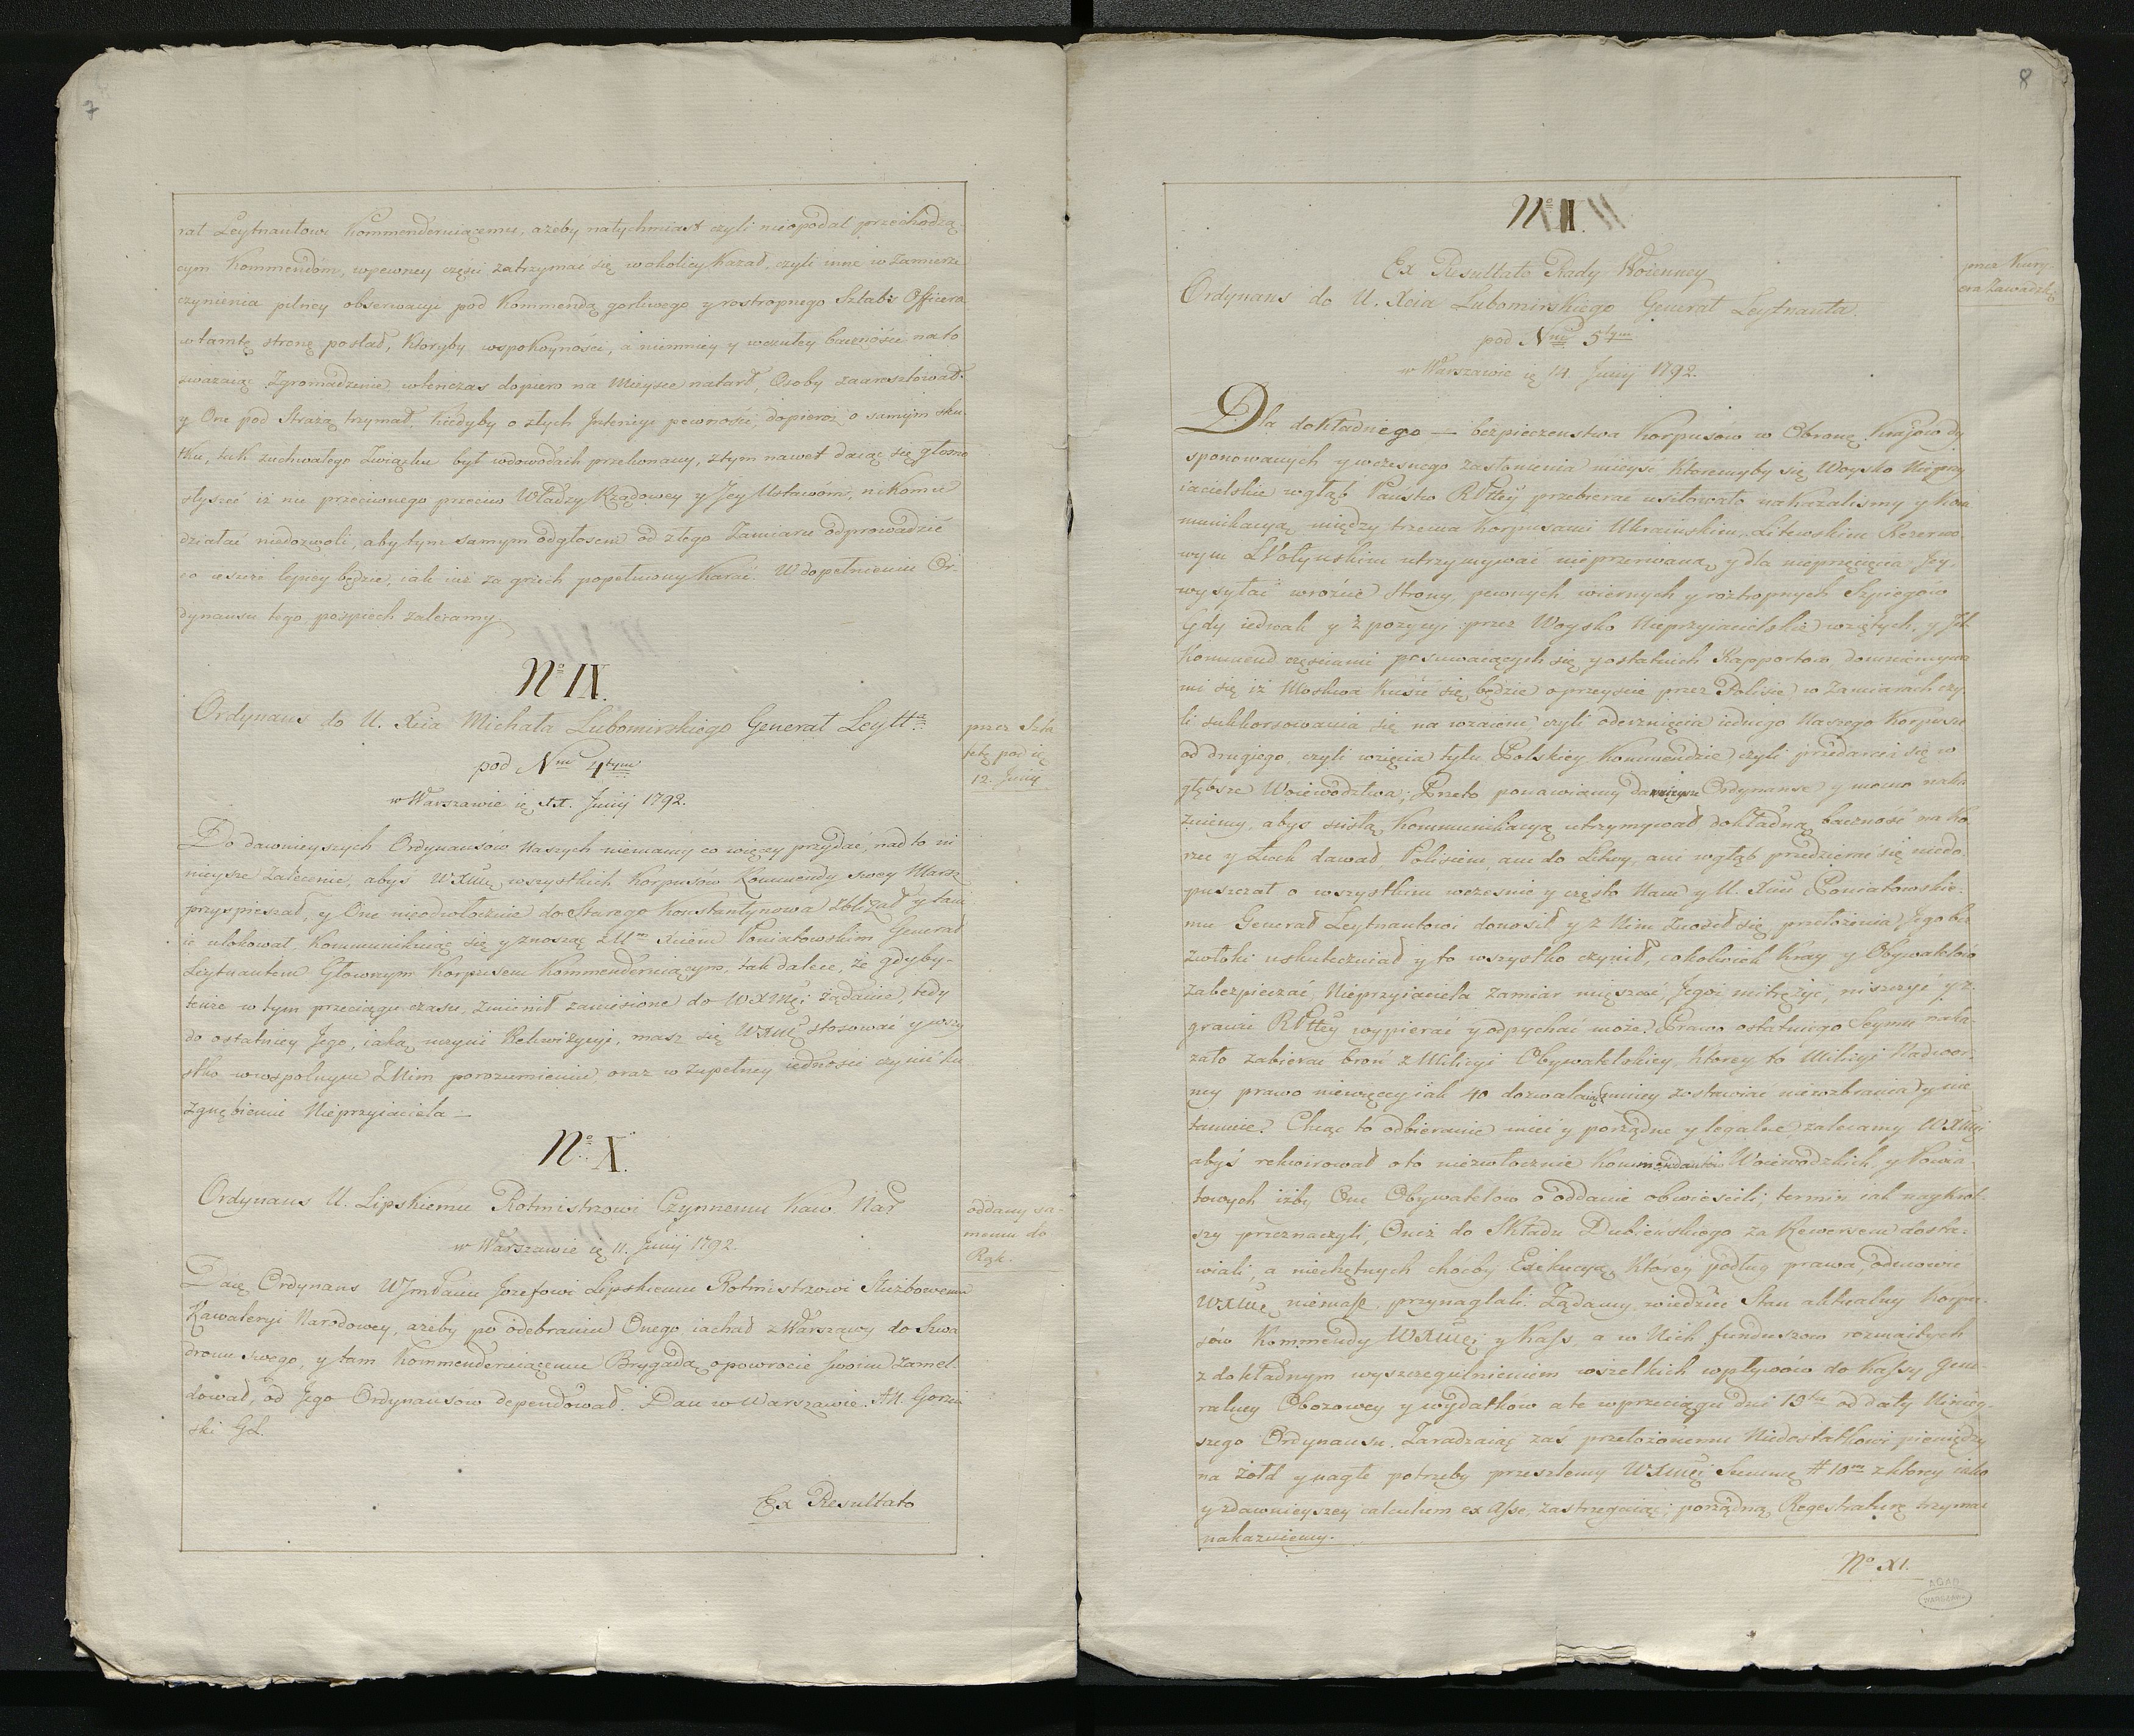 7
rał Leytnantowi Kommenderuiącemu, ażeby natychmiast czyli nieopodal przechodzą-
cym Kommendóm, w pewney części zatrzymać się w okolicy kazał, czyli inne w zamiarze
czynienia pilney obserwacyi pod Kommendą gorliwego y rostropnego Sztabs Officera
w tamtę stronę posłał, któryby w spokoyności, a niemniey y w czułey baczności na to
zważaiąc Zgromadzenie wtenczas dopiero na Mieysce natarł, Osoby zaaresztował
y One pod Strażą trzymał, kiedyby o złych Intencyi pewności, dopieroż o samym sku-
tku, tak zuchwałego Związku był w dowodach przekonany, z tym nawet daiąc się głosno
słyszeć iż nic przeciwnego przeciw Władzy Rządowey y Jey Ustawóm, nikomu
działać niedozwoli, aby tym samym odgłosem od złego Zamiaru odprowadzić
co ieszcze lepiey będzie, iak iuż za grzech popełniony karać. W dopełnieniu Or-
dynansu tego pospiech zalecamy.
No IX.
Ordynans do U. Xcia Michała Lubomirskiego Generał Leytt
pod Nm 4tym
w Warszawie ię 11. Junij 1792.
przez Szta
fetę pod ię
12. Junij
Do dawnieyszych Ordynansów Naszych niemamy co więcey przydać, nad to ni
nieysze zalecenie, abyś WXMć wszystkich Korpusów Kommendy swey Marsz
przyspieszał, y One nieodwłocznie do Starego Konstantynowa zbliżał y tam
ie ulokował, Kommunikuiąc się y znosząc z Um Xciem Poniatowskim Generał
Leytnantem Głownym Korpusem Kommenderuiącym, tak dalece, że gdyby-
tenże w tym przeciągu czasu, zmienił zaniesione do WXMći żądanie, tedy
do ostatniey Jego, iaką uczyni Rekwizycyi, masz się WXMć stosować y wszy
stko w wspolnym z Nim porozumieniu, oraz w zupełney iedności czynić ku
zgnębieniu Nieprzyiaciela —
No X.
Ordynans U. Lipskiemu Rotmistrzowi Czynnemu Kaw. Nar
w Warszawie ię 11. Junij 1792.
oddany sa-
memu do
Rąk.
Daię Ordynans WJmPanu Jozefowi Lipskiemu Rotmistrzowi Służbowemu
Kawaleryi Narodowey, ażeby po odebraniu Onego iachał z Warszawy do Szwa
dronu swego, y tam Kommenderuiącemu Brygadą o powrocie swoim zamel-
dował, od Jego Ordynansow dependował. Dan w Warszawie. AH. Gorzeń
ski GL.
Ex Resultato
8
No I
Ex Resultato Rady Woienney
Ordynans do U. Xcia Lubomirskiego Generał Leytnanta.
pod Nm 5tym
w Warszawie ię 14. Junij 1792.
przez Kury-
era Zawadzkę
Dla dokładnego — bezpieczenstwa Korpusów w Obronę Kraiow dy
sponowanych y wczesnego zasłonienia mieysc, któremyby się Woysko Nieprzy
iacielskie w głąb Panstw RPttey przebierać usiłowało, nakazalismy y Kom
munikacyą między trzema Korpusami Ukrainskim, Litewskim Rezerwo-
wym i Wołyńskim utrzymywać nieprzerwaną, y dla nieprzęcięcia Jey,
wysyłać w różne Strony, pewnych wiernych y roztropnych Szpiegów
Gdy iednak y z pozycyi przez Woysko Nieprzyiacielskie wziętych, y Jch
Kommend częsciami posuwaiących się y ostatnich Rapportow domniemywa
mi się iż Moskwa kusić się będzie o przeyscie przez Polisie w zamiarach czy
li sukkorsowania się na wzaiem czyli odcznięcia iednego Naszego Korpusu
od drugiego, czyli wzięcia tyłu Polskiey Kommendzie czyli przedarcia się w
głębsze Woiewodztwa; Przeto ponawiamy dawnieysze Ordynanse y mocno naka
zuiemy, abys scisłą Kommunikacyą utrzymywał dokładną baczność na Ko
rzec y Łuck dawał, Polisiem, ani do Litwy, ani w głąb przedzierać się niedo-
puszczał o wszystkim wcześnie y często Nam y U. Xciu Poniatowskie-
mu Generał Leytnantowi donosił y z Nim znosił się, przełożenia Jego bez
zwłoki uskuteczniał y to wszystko czynił, cokolwiek Kray y Obywatelów
zabezpieczać, Nieprzyiaciela zamiar mięszać, Jegoż mitrężyć, niszczyć y z
granic RPttey wypierać y odpychać może. Prawo ostatniego Seymu naka-
zało zabierać broń z Milicyi Obywatelskiey, ktorey to Milicyi Nadwor-
ney prawo niewięcey iak 40 dozwalaiąc (mniey zostawiać niewzbrania) y nie
tamuie. Chcąc to odbieranie mieć y porządne y legalne, zalecamy WXMći
abyś rekwirował oto niezwłocznie Kommendantów Woiewodzkich, y Powia-
towych iżby One Obywatelow o oddanie obwiescili, termin iak naykrot-
szy przeznaczyli, Oneż do Składu Dubienskiego za Rewersem dosta-
wiali, a niechętnych chocby Exekucyą, którey podług prawa, odmowić
WXMć niemasz, przynaglali. Żądamy wiedzieć Stan aktualny Korpu-
sów Kommendy WXMći y Kass, a w Nich funduszow rozmaitych
z dokładnym wyszczegulnieniem wszelkich wpływów do Kassy Gene-
ralney Obozowey y wydatków a te w przeciągu dni 10tu od daty Niniey-
szego Ordynansu. Zaradzaiąc zaś przełożonemu Niedostatkowi pieniędzy
na żołd y nagłe potrzeby przeszlemy WXMći Summę # 10m z ktorey iako
y zdawnieyszey calculum ex Asse, zastrzegaiąc; porządną Regestraturę trzymać
nakazuiemy.
No XI.
AGAD
WARSZAWA